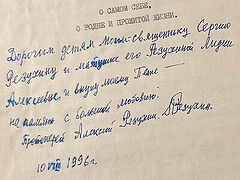 О САМОМ СЕБЕ,
О РОДНЕ И ПРОЖИТОЙ ЖИЗНИ.
Дорогим детям моим – священнику Сергию
Резухину и матушке его Резухиной Лидии
Алексеевне и внуку моему –
на память с большой любовию.
Протоиерей Алексий Резухин
10 VIII 1996 г